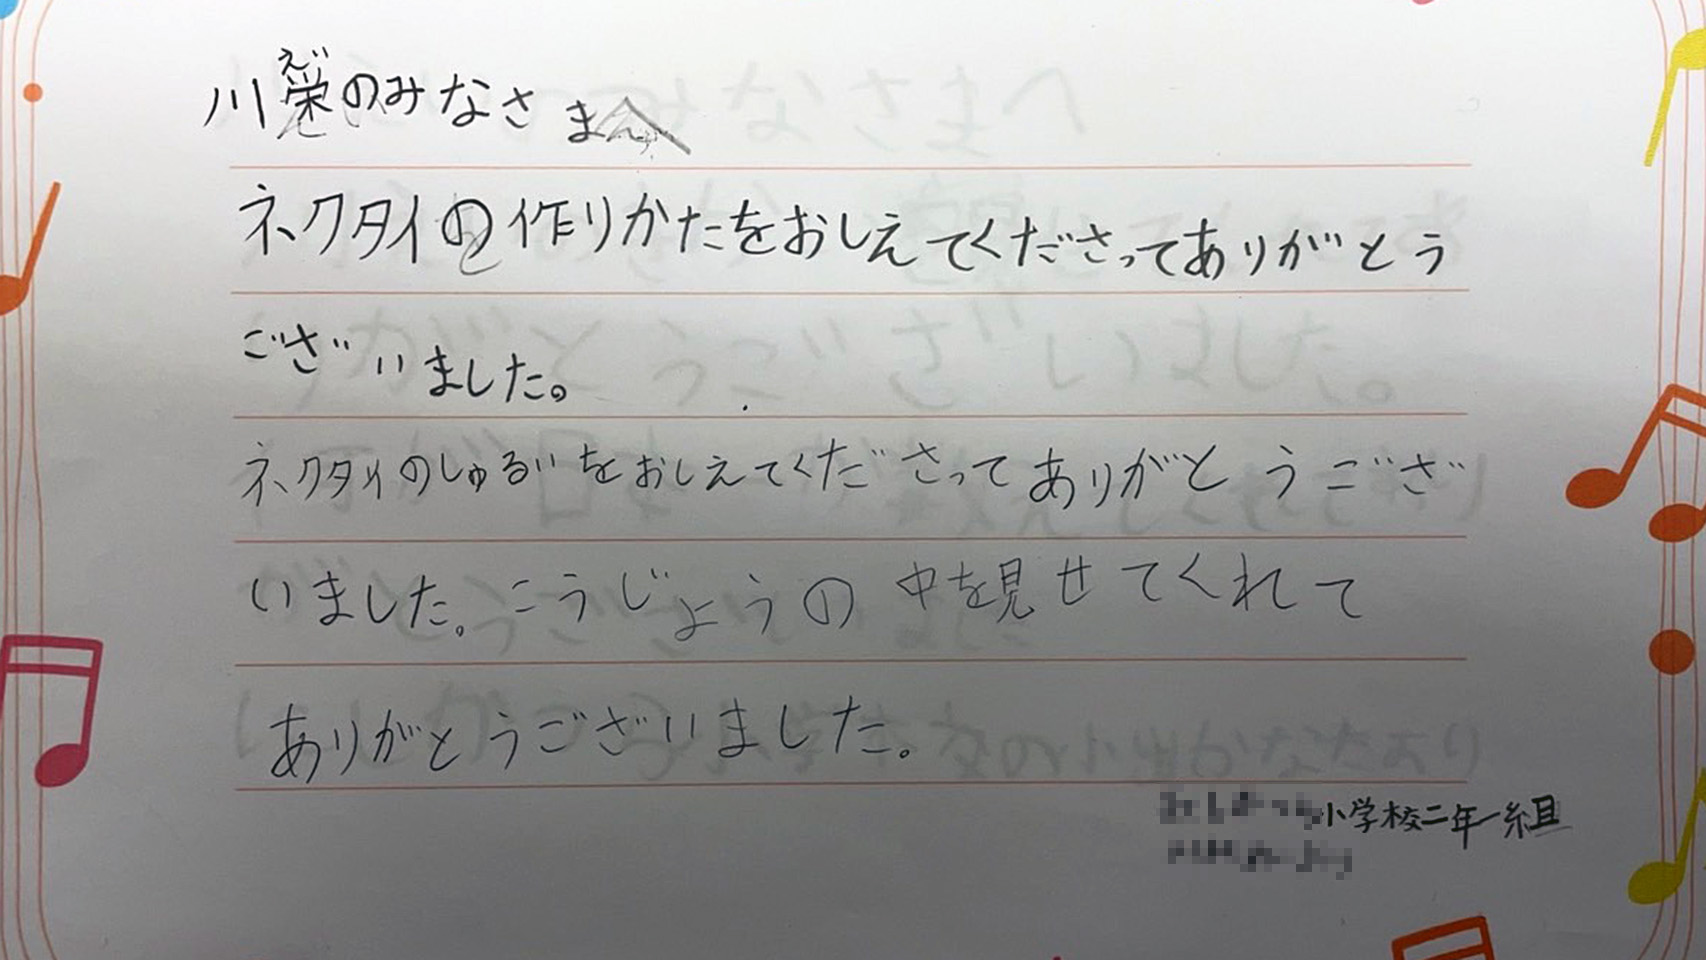 川栄のみなさまへ
えい
ネクタイの作りかたをおしえてくださってありがとう
ございました。
ネクタイのしゅるいをおしえてくださってありがとうござ
いました。こうじょうの中を見せてくれて
ありがとうございました。
小学校二年一組